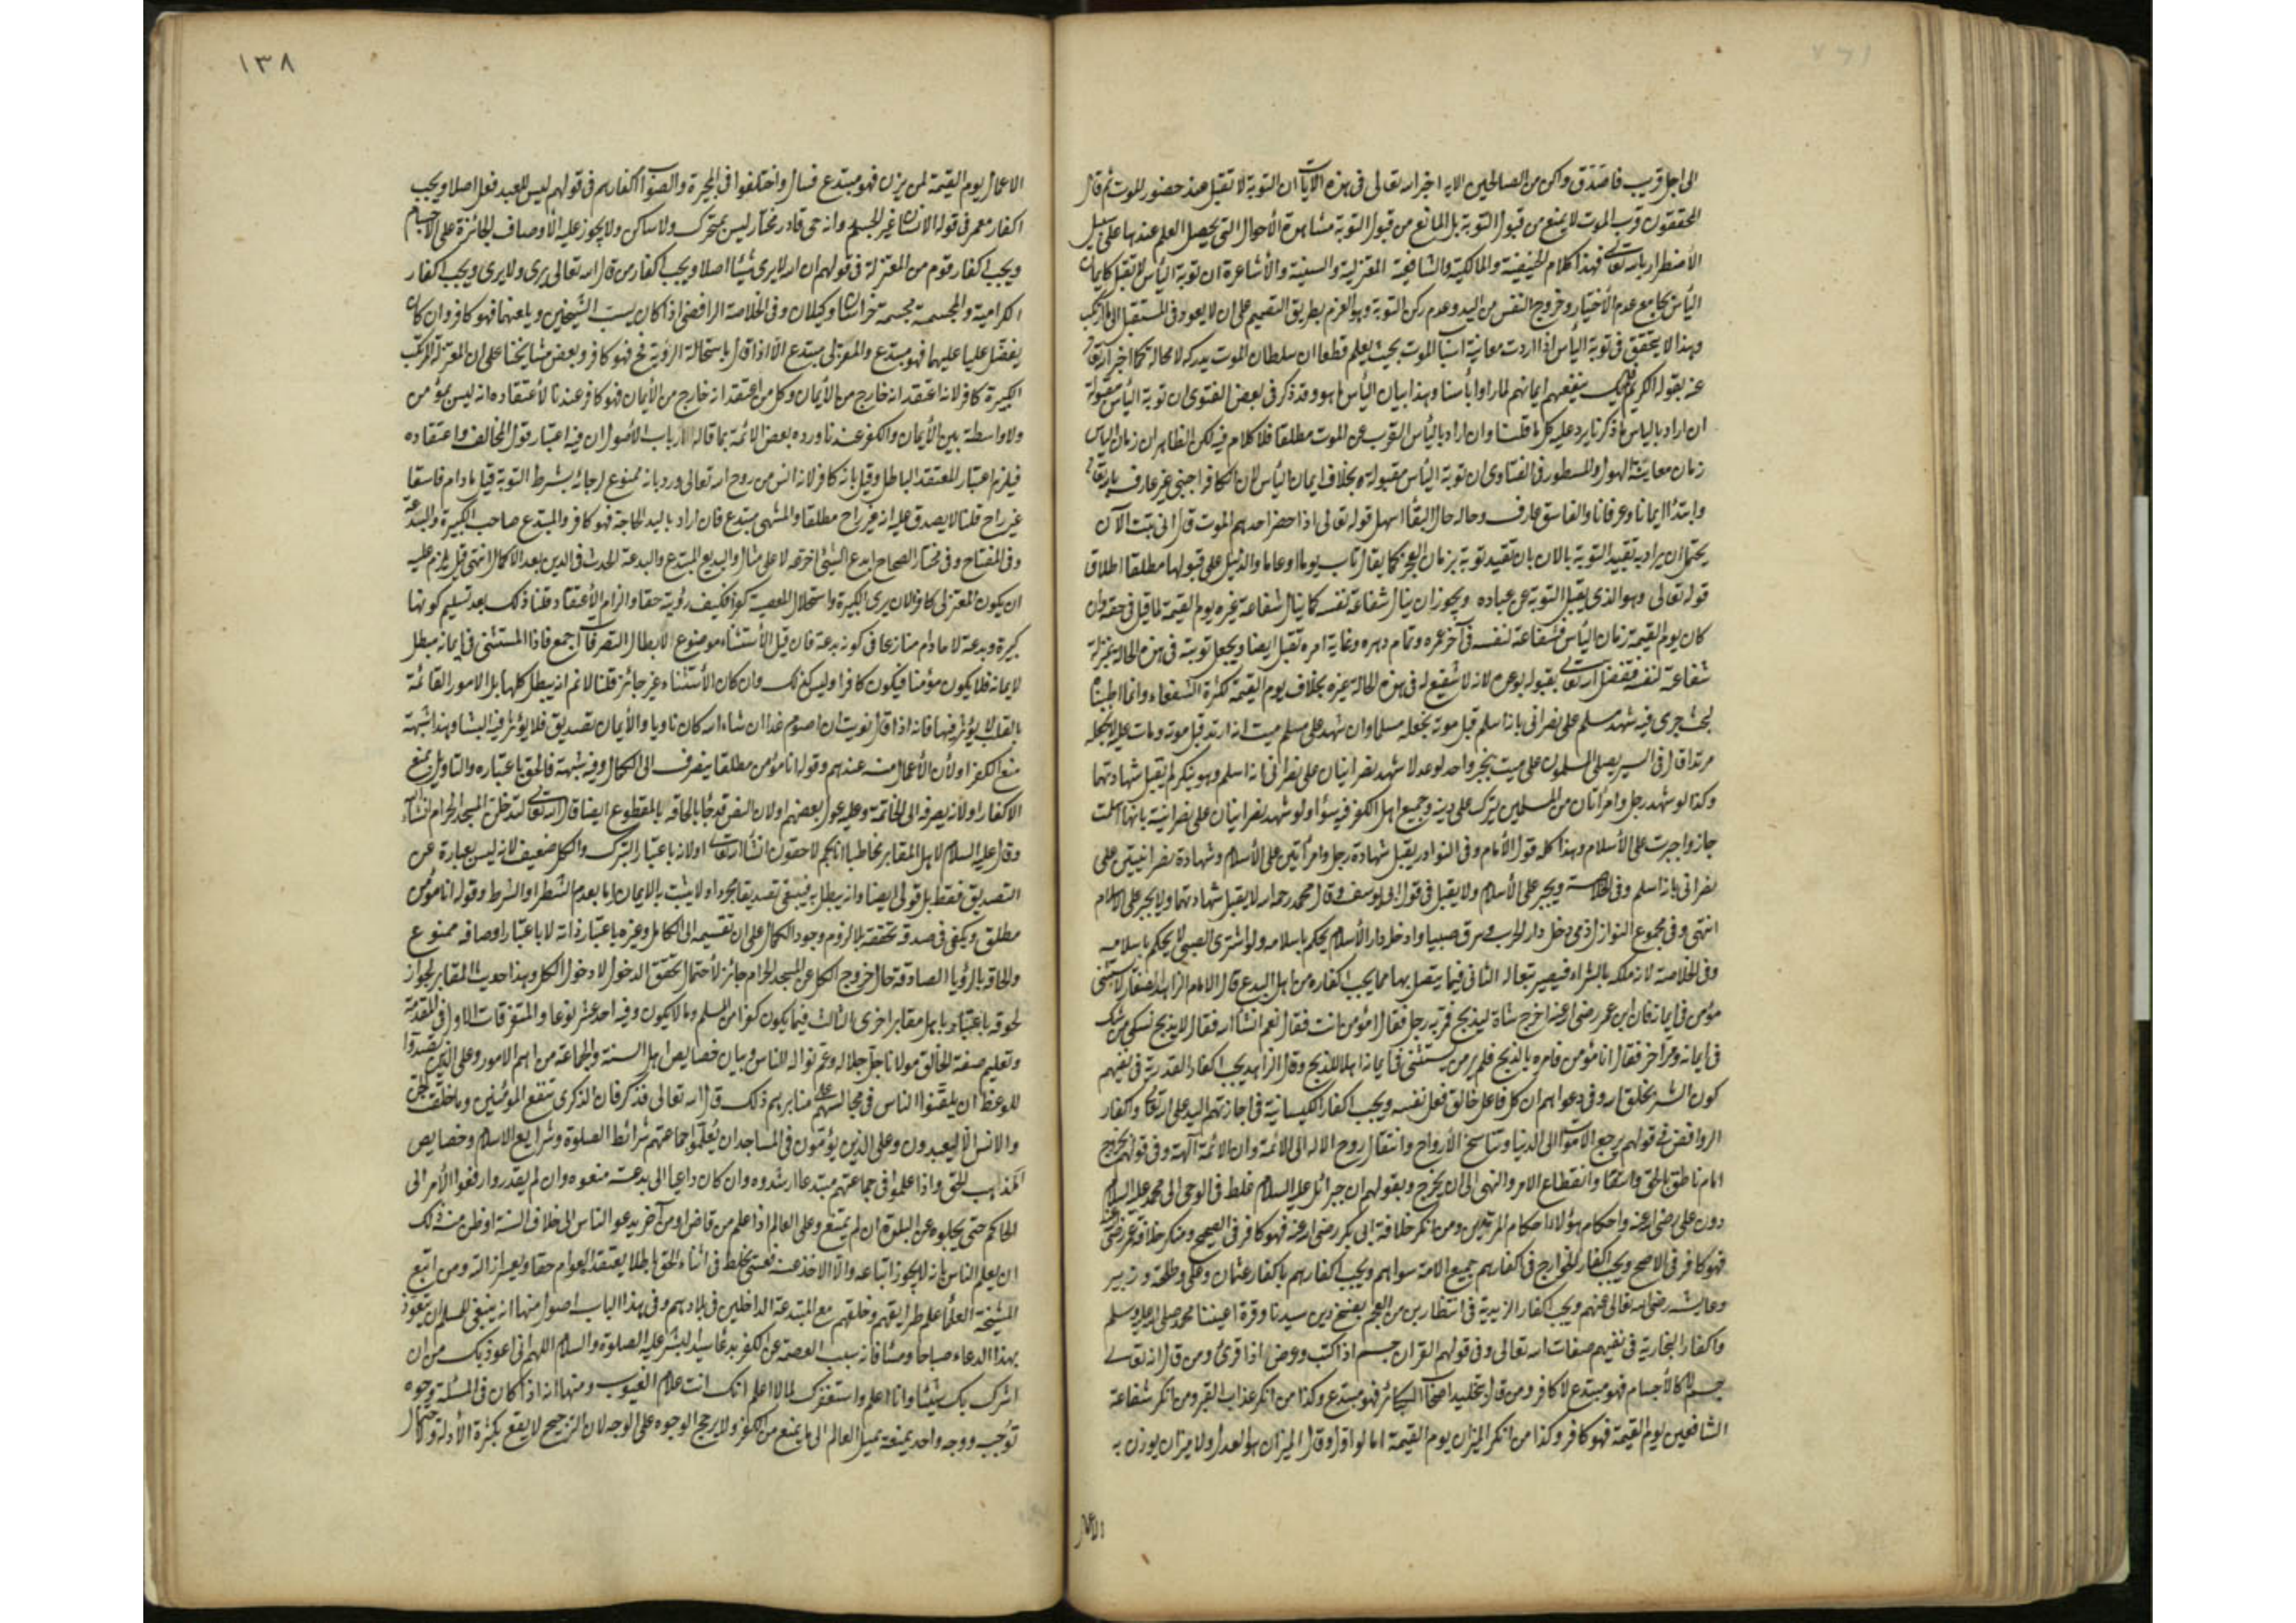 الى اجل قريب فاصدق واكن من الصالحين الاية اخبر الله تعالى فى هذه الآيات ان التوبة لا تقبل عند حضور الموت ثم قال
المحققون قرب الموت لا يمنع من قبول التوبة بل المانع من قبول التوبة مشاهدة الأحوال التى يحصل العلم عندها على سبيل
الأضطرار بالله تعالى فهذا كلام الحنيفية والمالكية والشافعية المعتزلية والسنية والأشاعرة ان توبة اليأس لا تقبل كايمان
اليأس بجامع عدم الأختيار وخروج النفس من اليد وعدم ركن التوبة وهو العزم بطريق التصميم على ان لا يعود فى المستقبل الى ما ارتكب
وهذا لا يتحقق فى توبة اليأس اذا اردت معاينة اسباب الموت بحيث يعلم قطعا ان سلطان الموت يدركه لا محالة كما اخبر الله تعالى
عنه بقوله الكريم فلم يك ينفعهم ايمانهم لما رأوا بأسنا وهذا بيان اليأس ما هو وقد ذكر فى بعض الفتوى ان توبة اليأس مقبولة
ان اراد باليأس ما ذكرنا يرد عليه كل ما قلنا وان اراد باليأس القرب من الموت مطلقا فلا كلام فيه لكن الظاهر ان زمان اليأس
زمان معاينة الهول والمسطور فى الفتاوى ان توبة اليأس مقبولة بخلاف ايمان اليأس لان الكافر اجنبى غير عارف بالله تعالى
وابتدأ ايمانا وعرفانا والفاسق عارف وحاله حال البقأ اسهل قوله تعالى اذا حضر احدهم الموت قال انى تبت الآن
يحتمل ان يراد به تقييد التوبة بالآن بان تقيد توبة بزمان العجز كما يقال تاب يوما او عاما والدليل على قبولها مطلقا اطلاق
قوله تعالى وهو الذى يقبل التوبة عن عباده ويجوز ان ينال شفاعة نفسه كما ينال شفاعة غيره يوم القيمة لما قيل فى حقه وان
كان يوم القيمة زمان اليأس فشفاعة لنفسه فى آخر عمره وتمام دهره وغاية امره تقبل ايضا ويجعل توبته فى هذه الحالة بمنزلة
شفاعة لنفسه فتفضل الله تعالى بقبوله بوعده لانه لا شفيع له فى هذه الحالة غيره بخلاف يوم القيمة لكثرة الشفعاء وانما اطنبنا
لبحث جرى فيه شهد مسلم على نصرانى بانه اسلم قبل موته نجعله مسلما وان شهد على مسلم ميت انه ارتد قبل موته ومات عليه لا نجعله
مرتدا قال فى السير يصلى المسلمون على ميت بخبر واحد لو عدلا شهد نصرانيان على نصرانى انه اسلم وهو ينكر لم يقبل شهادتهما
وكذا لو شهد رجل وامرأتان من المسلمين يترك على دينه وجميع اهل الكفر فيه سوأ ولو شهد نصرانيان على نصرانية بانها اسلمت
جاز واجبرت على الأسلام وهذا كله قول الأمام وفى النوادر يقبل شهادة رجل وامرأتين على الأسلام وشهادة نصرانيين على
نصرانى بانه اسلم وفى الخلاصة ويجبر على الأسلام ولا يقتل فى قول ابى يوسف وقال محمد رحمه الله لا يقبل شهادتهما ولا يجبر على الاسلام
انتهى وفى مجموع النوازل ذمى دخل دار الحرب وسرق صبيا وادخل دار الأسلام يحكم باسلامه ولو اشترى الصبى لا يحكم باسلامه
وفى الخلاصة لانه ملكه بالشراء فيصير تبعا له الثانى فيما يتصل بها مما يجب اكفاره من اهل البدع قال الامام الزاهد الصفار لا يستثنى
مؤمن فى ايمانه فان ابن عمر رضى الله عنه اخرج شاة ليذبح فمر به رجل فقال امؤمن انت فقال نعم انشأ الله فقال لا يذبح نسكى من شك
فى ايمانه ومر آخر فقال انا مؤمن فامره بالذبح فلم ير من يستثنى فى ايمانه اهلا للذبح وقال الزاهد يجب اكفار القدرية فى نفيهم
كون الشر بخلق الله وفى دعواهم ان كل فاعل خالق فعل نفسه ويجب اكفار الكيسانية فى اجازتهم البدء على الله تعالى واكفار
الروافض فى قولهم برجع الأموات الى الدنيا وتناسخ الأرواح وانتقال روح الاله الى الائمة وان الائمة آلهة وفى قولهم بخروج
امام ناطق بالحق وانقطاع الامر والنهى الى ان يخرج وبقولهم ان جبرائل عليه السلام غلط فى الوحى الى محمد عليه السلام
دون على رضى الله عنه واحكام هؤلاء احكام المرتدين ومن انكر خلافة ابى بكر رضى الله عنه فهو كافر فى الصحيح ومنكر خلافة عمر رضى الله عنه
فهو كافر فى الاصح ويجب اكفار الخوارج فى اكفارهم جميع الامة سواهم ويجب اكفارهم باكفار عثمان وعلى وطلحة وزبير
وعايشة رضى الله تعالى عنهم ويجب اكفار الزيدية فى انتظار نبى من العجم ينسخ دين سيدنا وقرة اعيننا محمد صلى الله عليه وسلم
واكفار النجارية فى نفيهم صفات الله تعالى وفى قولهم القرآن جسم اذا كتب وعرض اذا قرئ ومن قال انه تعالى
جسم لا كالأجسام فهو مبتدع لا كافر ومن قال بتخليد اصحاب الكبائر فهو مبتدع وكذا من انكر عذاب القبر ومن انكر شفاعة
الشافعين يوم القيمة فهو كافر وكذا من انكر الميزان يوم القيمة اما لو اول وقال الميزان هو العدل ولا ميزان يوزن به
الاعمال
١٣٨
الاعمال يوم القيمة لمن يزن فهو مبتدع ضال واختلفوا فى المجبرة والصواب اكفارهم فى قولهم ليس للعبد فعل اصلا ويجب
اكفار معمر فى قوله الانسان غير الجسم وانه حى قادر مختار ليس بمتحرك ولا ساكن ولا يجوز عليه الأوصاف الجائزة على الاجسام
ويجب اكفار قوم من المعتزلة فى قولهم ان الله لا يرى شيئا اصلا ويجب اكفار من قال الله تعالى يرى ولا يرى ويجب اكفار
الكرامية والمجسمة مجسمة خراسان وكيلان وفى الخلاصة الرافضى اذا كان يسب الشيخين ويلعنهما فهو كافر وان كان
يفضل عليا عليهما فهو مبتدع والمعتزلى مبتدع الا اذا قال باستحالة الرؤية فح فهو كافر وبعض مشايخنا على ان المعتزلة المرتكب
الكبيرة كافر لانه اعتقد انه خارج من الأيمان وكل من اعتقد انه خارج من الأيمان فهو كافر عندنا لأعتقاده انه ليس بمؤمن
ولا واسطة بين الأيمان والكفر عندنا ورده بعض الائمة بما قاله ارباب الأصول ان فيه اعتبار قول المخالف واعتقاده
فيلزم اعتبار المعتقد الباطل وقيل بانه كافر لانه ائس من روح الله تعالى ورد بانه ممنوع لرجائه بشرط التوبة قيل ما دام فاسقا
غير راج قلنا لا يصدق عليه انه غير راج مطلقا والمشبهى مبتدع فان اراد باليد الجارحة فهو كافر والمبتدع صاحب الكبيرة والبدعة
وفى المفتاح وفى مختار الصحاح ابدع الشئ اخترعه لا على مثال والبديع المبتدع والبدعة الحدث فى الدين بعد الاكمال انتهى قيل يلزم عليه
ان يكون المعتزلى كافرا لان يرى الكبيرة واستحلال المعصية كفر فكيف رؤية حقا والزام الأعتقاد قلنا ذلك بعد تسليم كونها
كبيرة وبدعة لا ما دام منازعا فى كونه بدعة فان قيل الأستثناء موضوع لابطال التصرفات اجمع فاذا المستثنى فى ايمانه مبطل
لايمانه فلا يكون مؤمنا فيكون كافرا وليس كذلك وان كان الأستثناء غير جائز قلنا لا نم انه يبطل كلها بل الامور القائمة
بالقلب لا يؤثر فيها فانه اذا قال نويت ان اصوم غدا ان شاء الله كان ناويا والأيمان تصديق فلا يؤثر فيه الثنيا وهذا شبهة
منع الكفر او لأن الأعمال منه عندهم وقوله انا مؤمن مطلقا ينصرف الى الكمال وفيه شبهة فالحق باعتباره والتاويل يمنع
الاكفار او لانه يصرفه الى الخاتمة وعليه عول بعضهم او لان النص قد جاء بالحاقه بالمقطوع ايضا قال الله تعالى لتدخلن المسجد الحرام انشأ الله
وقال عليه السلام لاهل المقابر مخاطبا انا بكم لاحقون انشأ الله تعالى او لانه باعتبار التبرك والكل ضعيف لانه ليس بعبارة عن
التصديق فقط بل قولى ايضا وانه يبطل به فيبقى تصديقا مجردا ولا يثبت به الايمان اما بعدم الشطر او الشرط وقوله انا مؤمن
مطلق ويكفى فى صدقه تحققه بلا لزوم وجود الكمال على ان تقسيمه الى الكامل وغيره باعتبار ذاته لا باعتبار اوصافه ممنوع
والحاقه بالرؤيا الصادقة حال خروج الكل عن المسجد الحرام جائز لأحتمال تحقق الدخول لا دخول الكل وهذا حديث المقابر لجواز
لحوقه باعتباره باهل مقابر اخرى الثالث فيما يكون كفرا من المسلم وما لا يكون وفيه احد عشر نوعا والمتفرقات الاول فى المقدمة
وتعليم صفة الخالق مولانا جل جلاله وعم نواله للناس وبيان خصايص اهل السنة والجماعة من اهم الامور وعلى الذين تصدوا
للوعظ ان يلقنوا الناس فى مجالسهم على منابرهم ذلك قال الله تعالى فذكر فان الذكرى تنفع المؤمنين وما خلقت الجن
والانس الا ليعبدون وعلى الذين يؤمون فى المساجد ان يعلموا جماعتهم شرائط الصلوة وشرايع الاسلام وخصايص
المذاهب الحق واذا علموا فى جماعتهم مبتدعا ارشدوه وان كان داعيا الى بدعته منعوه وان لم يقدروا رفعوا الأمر الى
الحاكم حتى يجلوه عن البلدة ان لم يمتنع وعلى العالم اذا علم من قاض او من آخر يدعو الناس الى خلاف السنة او ظن منه ذلك
ان يعلم الناس بانه لا يجوز اتباعه والا الاخذ عنه فعسى يخلط فى اثناء الحق باطلا يعتقده العوام حقا ويعسر ازالته ومن اتبع
المشيخة العلمأ علم طرايقهم وخلقهم مع المبتدعة الداخلين فى بلادهم وفى هذا الباب اصول منها انه ينبغى للمسلم ان يتعوذ
بهذا الدعاء صباحا ومسأ فانه سبب العصمة عن الكفر بدعأ سيد البشر عليه الصلوة والسلام اللهم انى اعوذ بك من ان
اشرك بك شيئا وانا اعلم واستغفرك لما لا اعلم انك انت علام الغيوب ومنها انه اذا كان فى المسئلة وجوه
توجبه ووجه واحد يمنعه يميل العالم الى ما يمنع من الكفر ولا يرجح الوجوه على الوجه لان الترجيح لا يقع بكثرة الأدلة ولاحتمال